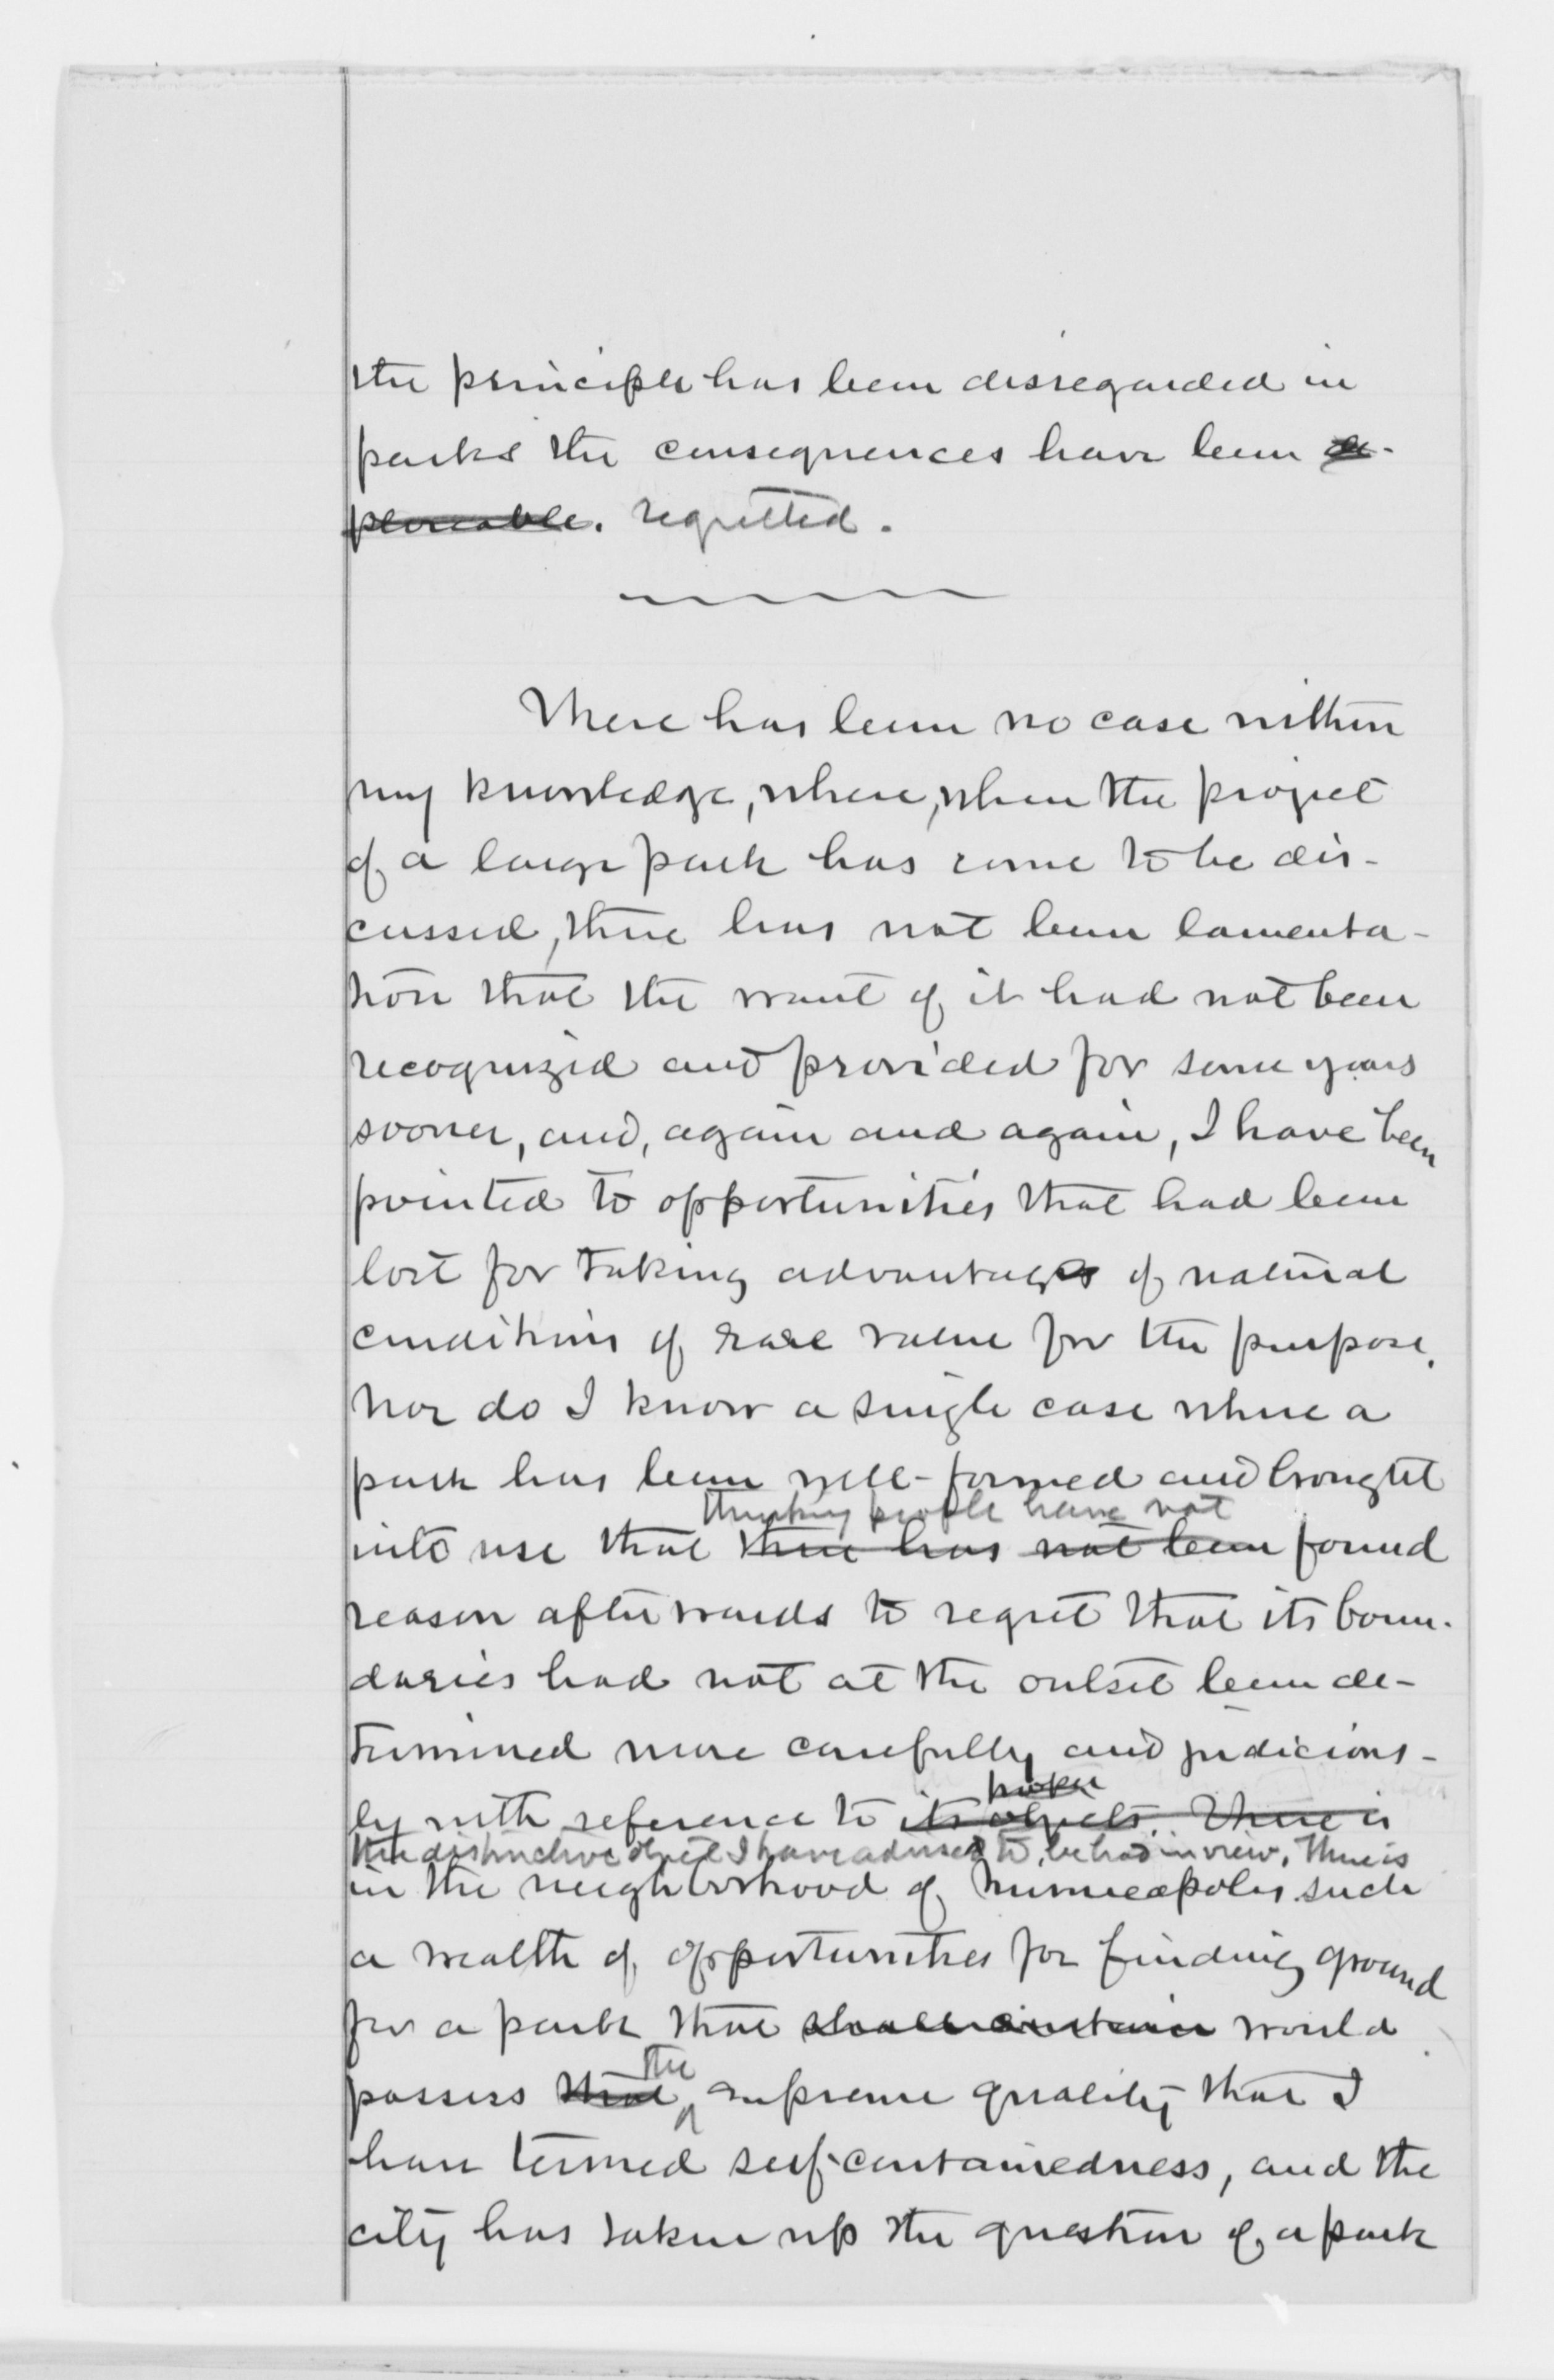 the principle has been disregarded in
parks the consequences have been de-
plorable. regretted.
There has been no case within
my knowledge, where, when the project
of a large park has come to be dis-
cussed, there has not been lamenta-
tion that the want of it had not been
recognized and provided for some years
sooner, and, again and again, I have been
pointed to opportunities that had been
lost for taking advantage of natural
conditions of rare value for the purpose.
Nor do I know a single case where a
park has been well-formed and brought
thinking people have not
into use that there has not been found
reason afterwards to regret that its boun-
daries had not at the outset been de-
termined more carefully and judicious-
proper
ly with reference to its objects. There is
the distinctive object I have advised to be had in view. There is
in the neighborhood of Minneapolis such
a wealth of opportunities for finding ground
for a park that shall contain would
the
possess that supreme quality that I
have termed self-containedness, and the
city has taken up the question of a park